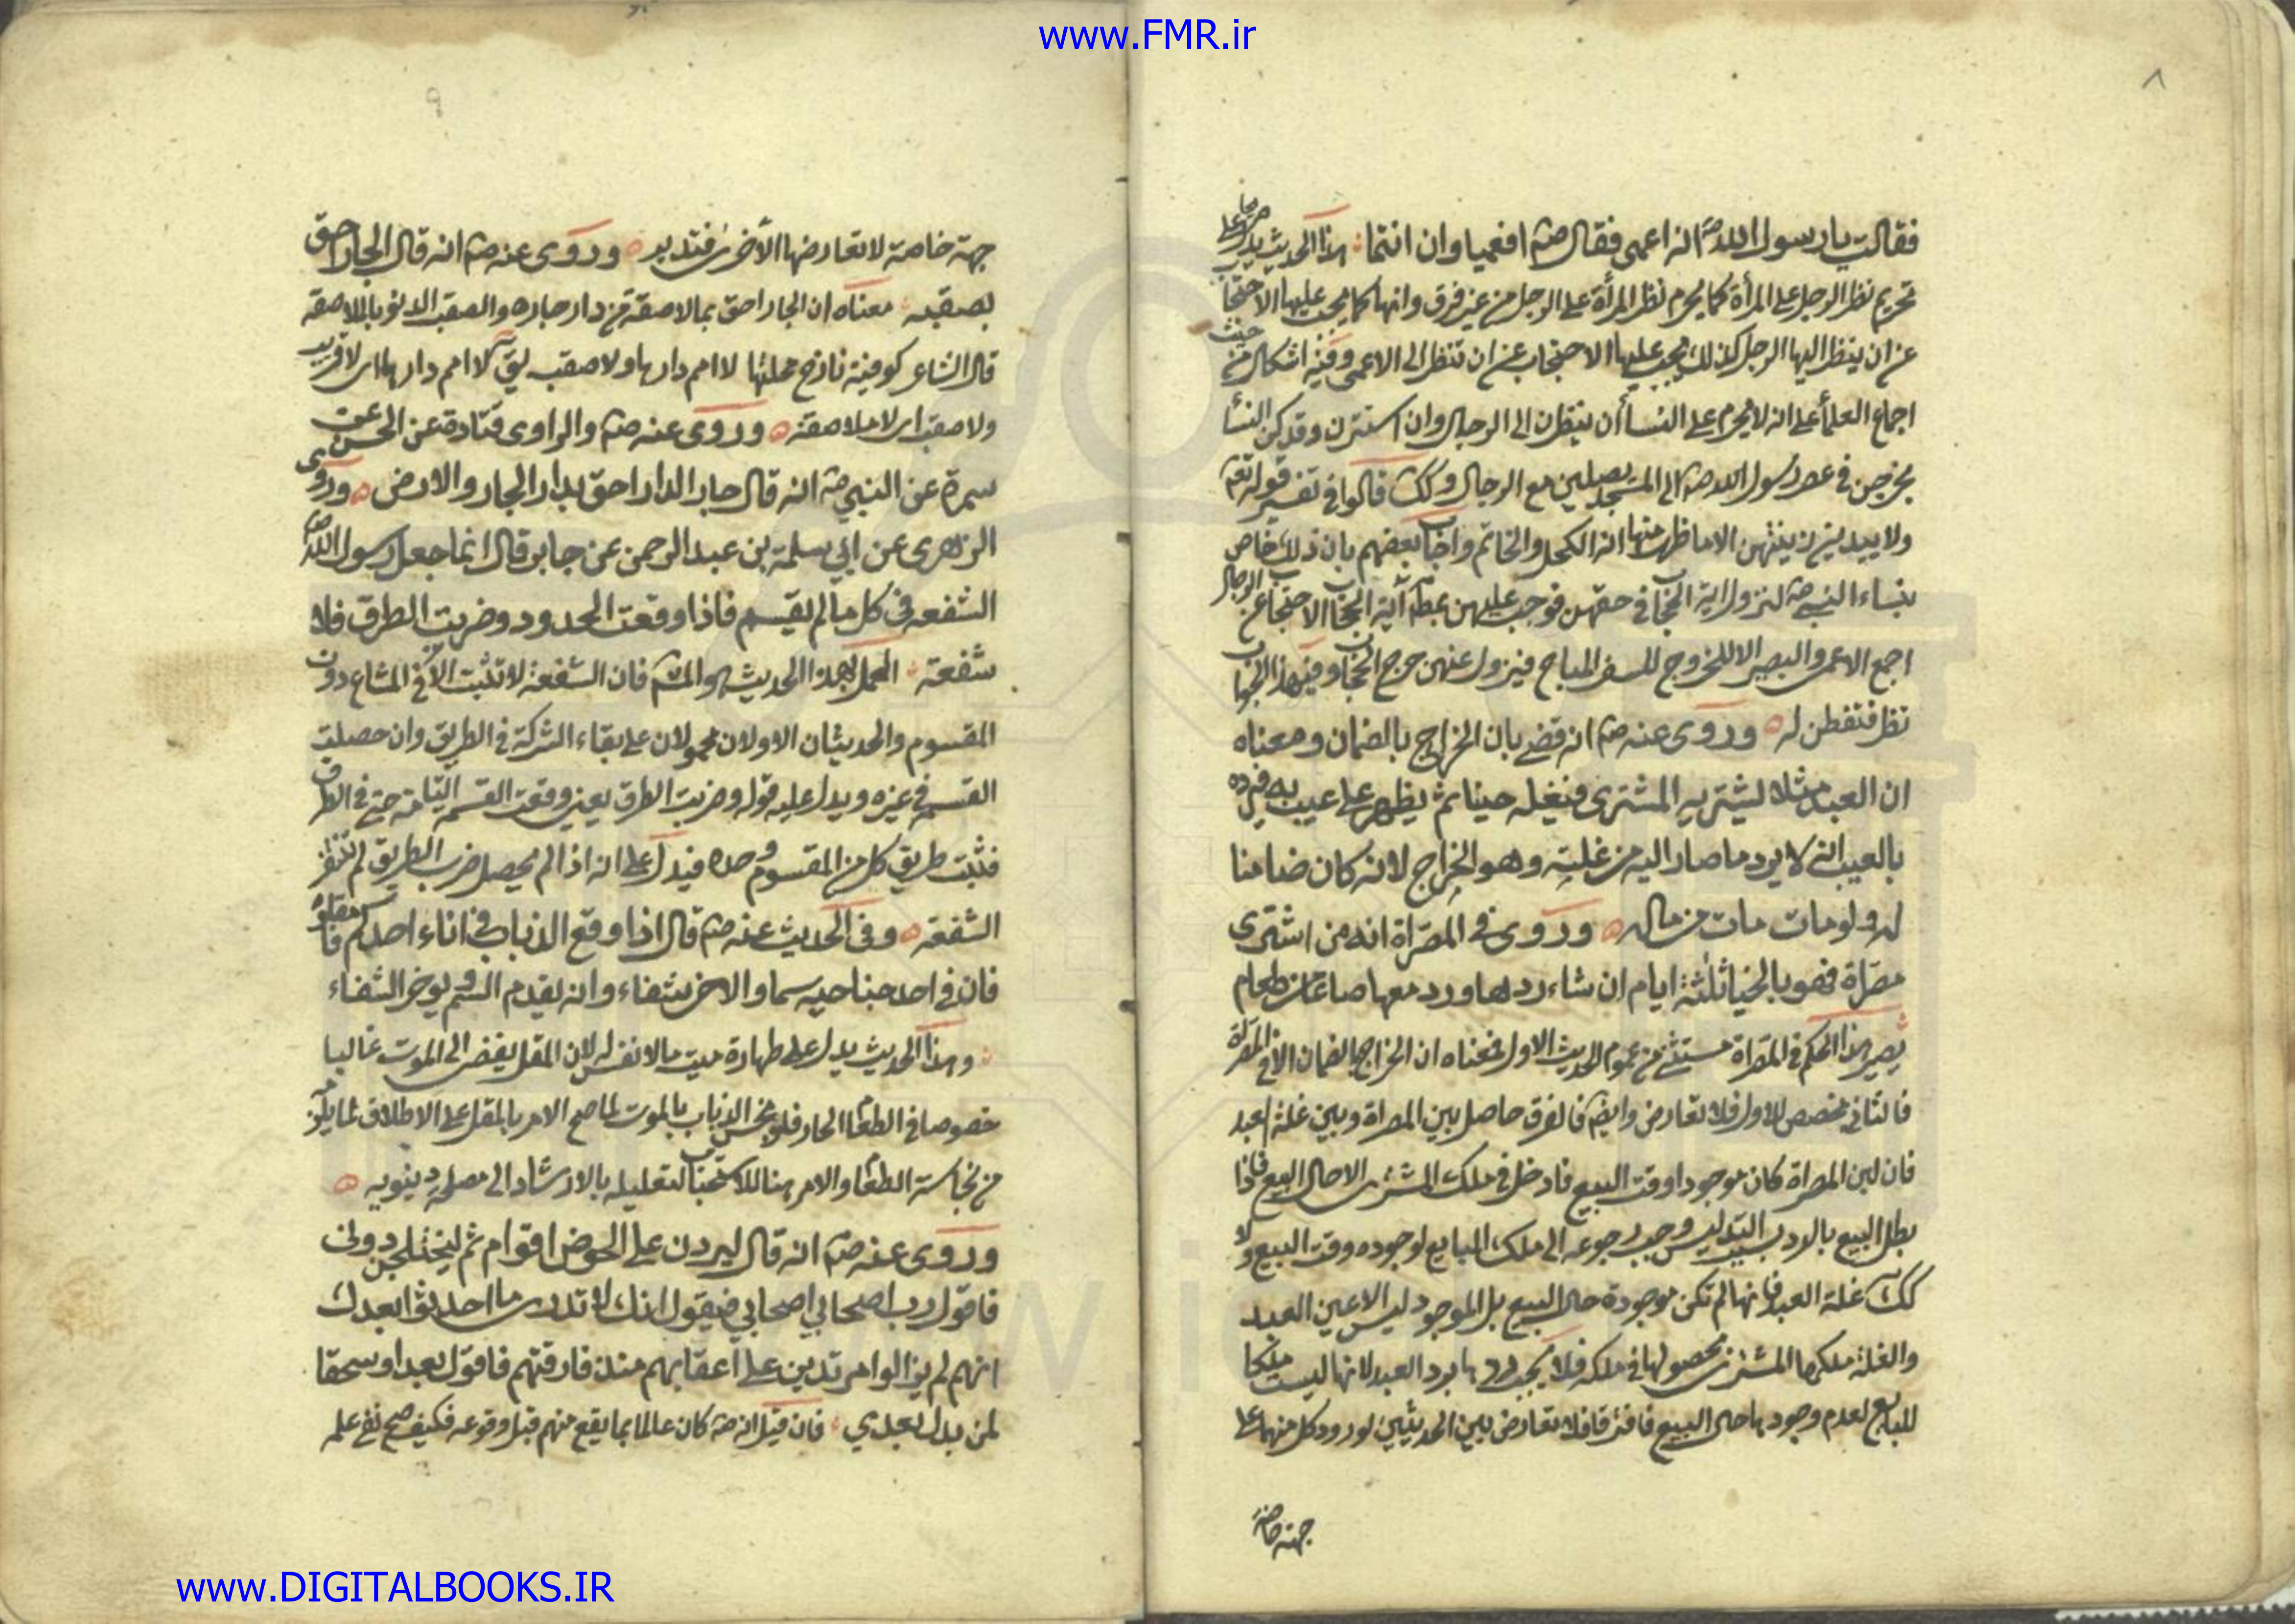 www.FMR.ir
٨
فقالت يا رسول الله ص انه اعمى فقال صم افعميا وان انتما هذا الحديث يدل صريحا على
تحريم نظر الرجل على المرأة كما يحرم نظر المرأة على الرجل من غير فرق وانها كما يجب عليها الاحتجاب
عن ان ينظر اليها الرجل كذلك يجب عليها الاحتجاب عن ان تنظر الى الاعمى وفيه اشكال من حيث
اجماع العلمأ على انه لا يحرم على النسأ ان ينظرن الى الرجال وان استترن وقد كن النسأ
يخرجن فى عصر رسول الله صم الى المسجد يصلين مع الرجال وكك قالوا فى تفسير قوله تعم
ولا يبدين زينتهن الا ما ظهر منها انه الكحل والخاتم واجاب بعضهم بان ذلك خاص
بنساء النبى صم لنزول اية الحجاب فى حقهن فوجب عليهن بمط آية الحجاب الاحتجاب عن الرجال
اجمع الاعمى والبصير الا للخروج للسفر المباح فيزول عنهن حرج الحجاب وفى هذا الجواب
نظر فتفطن له وروى عنه صم انه قضى بان الخراج بالضمان ومعناه
ان العبد مثلا يشتريه المشترى فيغله حينا ثم يظهر على عيب به فيرده
بالعيب انه لا يرد ما صار اليه من غلته وهو الخراج لانه كان ضامنا
له ولو مات مات من ماله وروى فى المصراة انه من اشترى
مصراة فهو بالخيار ثلثة ايام ان شاء ردها ورد معها صاعا من طعام
يصير هذا الحكم فى المصراة مستثنى من عموم الحديث الاول فمعناه ان الخراج بالضمان الا فى المصراة
فالثانى مخصص للاول فلا تعارض وايضم فالفرق حاصل بين المصراة وبين غلة العبد
فان لبن المصراة كان موجودا وقت البيع فادخل فى ملك المشترى الاحال البيع فاذا
بطل البيع بالرد بسبب التدليس وجب رجوعه الى ملك البايع لوجوده وقت البيع ولا
كك غلة العبد فانها لم تكن موجودة حال البيع بل الموجود ليس الا عين العبد
والغلة ملكها المشترى بحصولها فى ملكه فلا يجب ردها برد العبد لانها ليست ملكا
للبايع لعدم وجودها حال البيع فافترقا فلا تعارض بين الحديثين لورود كل منهما على
جهة خاصة
٩
جهة خاصة لا تعارضها الأخرى فتدبر وروى عنه صم انه قال الجار احق
بصقبه معناه ان الجار احق بما لاصقه من دار جاره والصقب الدنو بالملاصقة
قال الشاعر كوفية نازح محلتها لا امم دارها ولا صقب لا امم دارها اى لا قريب
ولا صقب اى لا ملاصقة وروى عنه صم والراوى قتادة عن الحسن عن
سمرة عن النبى صم انه قال جار الدار احق بدار الجار والارض وروى
الزهرى عن ابى سلمة بن عبد الرحمن عن جابر قال انما جعل رسول الله ص
الشفعه فى كل ما لم يقسم فاذا وقعت الحدود وضربت الطرق فلا
شفعة العمل بهذا الحديث هو المشم فان الشفعة لا تثبت الا فى المشاع دون
المقسوم والحديثان الاولان محمولان على بقاء الشركة فى الطريق وان حصلت
القسمة فى غيره ويدل عليه قوله وضربت الطرق يعنى وقعت القسمة التامة حتى فى الطرق
فثبت طريق كل من المقسوم وحده فيدل على انه اذا لم يحصل ضرب الطريق لم تنتف
الشفعة وفى الحديث عنه صم قال اذا وقع الذباب فى اناء احدكم فامقلوه
فان فى احد جناحيه سما والاخر شفاء وانه يقدم السم ويوخر الشفاء
وهذا الحديث يدل على طهارة ميت ما لا نفس له لان المقل يفضى الى الموت غالبا
خصوصا فى الطعام الحار فلو نجس الذباب بالموت لما صح الامر بالمقل على الاطلاق لما يلزم
من نجاسة الطعام والامر هنا للاستحباب لتعليله بالارشاد الى مصلحة دينويه
وروى عنه صم انه قال ليردن على الحوض اقوام ثم ليختلجن دونى
فاقول رب اصحابى اصحابى فيقول انك لا تدرى ما احدثوا بعدك
انهم لم يزالوا مرتدين على اعقابهم منذ فارقتهم فاقول بعدا وسحقا
لمن بدل بعدي فان قيل انه صم كان عالما بما يقع منهم قبل وقوعه فكيف صح نفى علمه
www.DIGITALBOOKS.IR